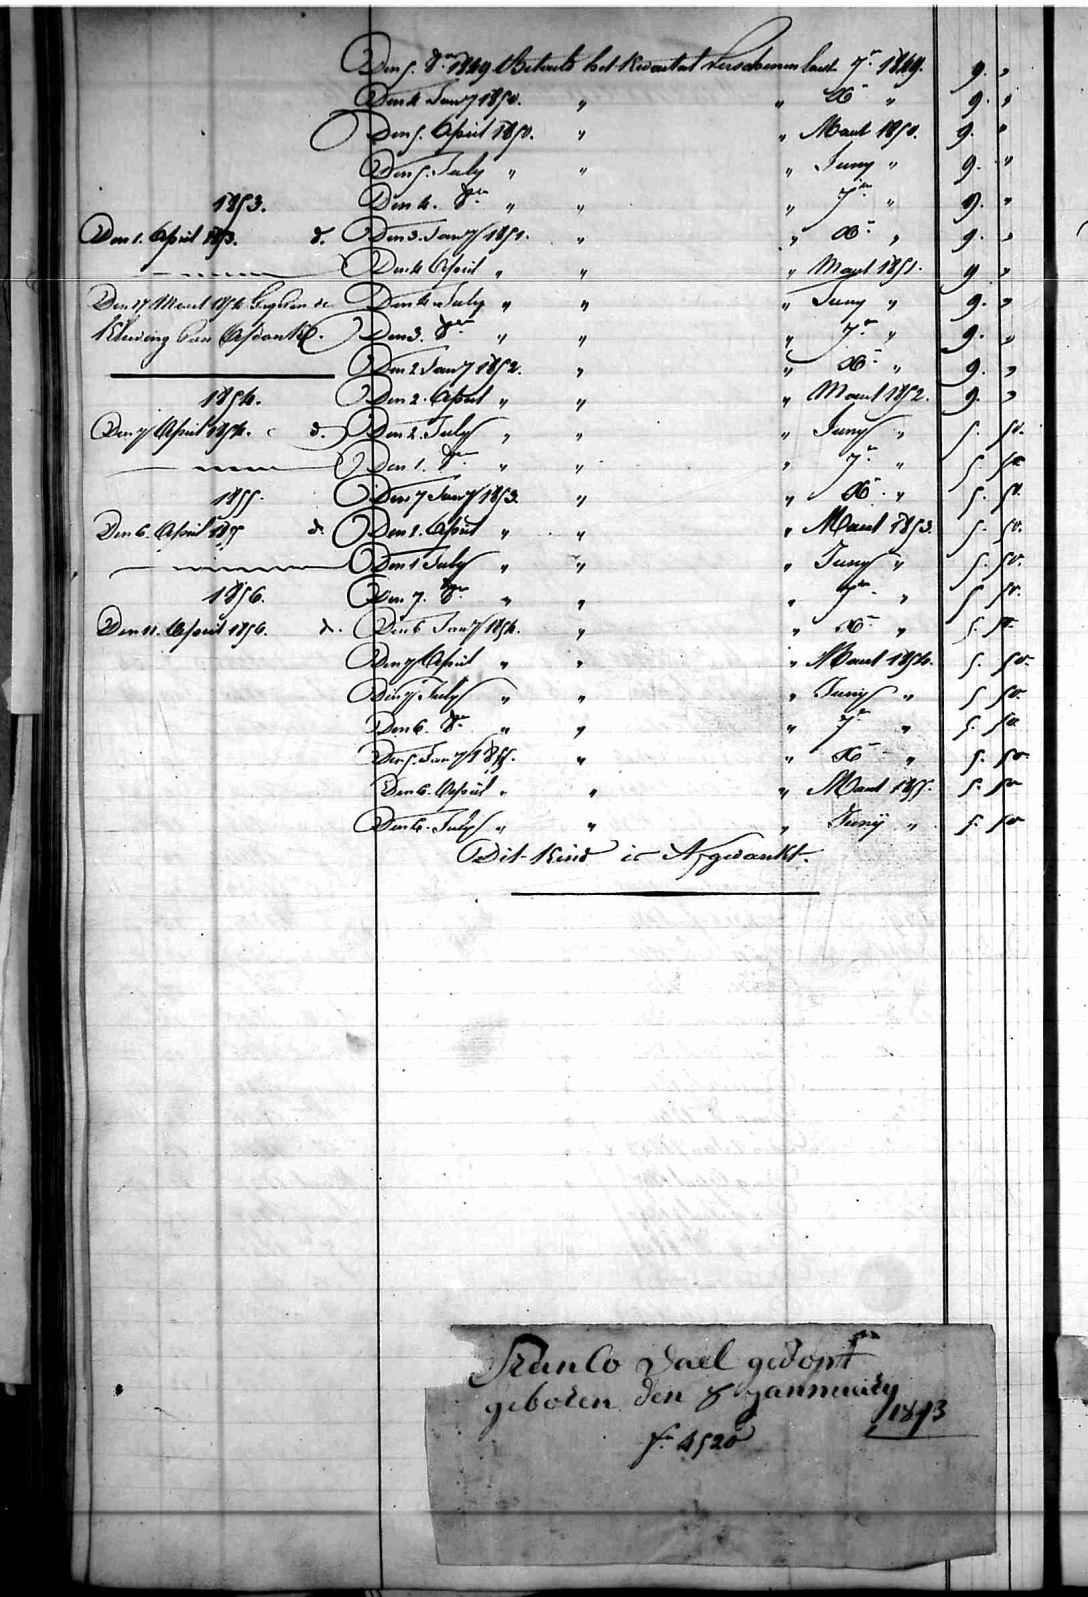 Den 5. 8er 1849 Betaald het Kwartaal verschenen laat. 7r 1849. 9. "
Den 4 Janry 1850. " " Xr " 9. "
Den 5. April 1850. " " Maart 1850. 9. "
Den 5. July " " " Juny " 9. "
1853. Den 4. 8er " " " 7er " 9. "
Den 1. April 1853. d. Den 3. Janry 1851. " " Xr " 9. "
Den 4 April " " " Maart 1851. 9 "
Den 17 Maart 1854 Gegeven de Den 4 July " " " Juny " 9. "
Kleeding van Afdank. Den 3. 8er " " " 7er " 9. "
Den 2 Janry 1852. " " Xr " 9. "
1854. Den 2. April " " " Maart 1852. 9. "
Den 7 April 1854. d. Den 2. July " " " Juny " 5. 50.
Den 1. 8er " " " 7r " 5. 50
1855. Den 7 Janry 1853. " " Xr " 5. 50.
Den 6. April 1855 d. Den 1. April " " " Maart 1853. 5. 50.
Den 1 July " " " Juny " 5. 50.
1856. Den 7. 8er " " " 7er " 5. 50.
Den 11. April 1856. d. Den 6 Janry 1854. " " Xr " 5. 50.
Den 7 April " " " Maart 1854. 5. 50.
Den 7 July " " " Juny " 5. 50.
Den 6. 8er " " " 7r " 5. 50
Den 5. Janry 1855. " " Xr " 5. 50
Den 6. April " " " Maart 1855. 5. 50
Den 6. July " " " Junij " 5. 50
Dit Kind is Afgedankt.
Franco Dael gedopt
geboren den 8 Jannuary
1843
fo 4520